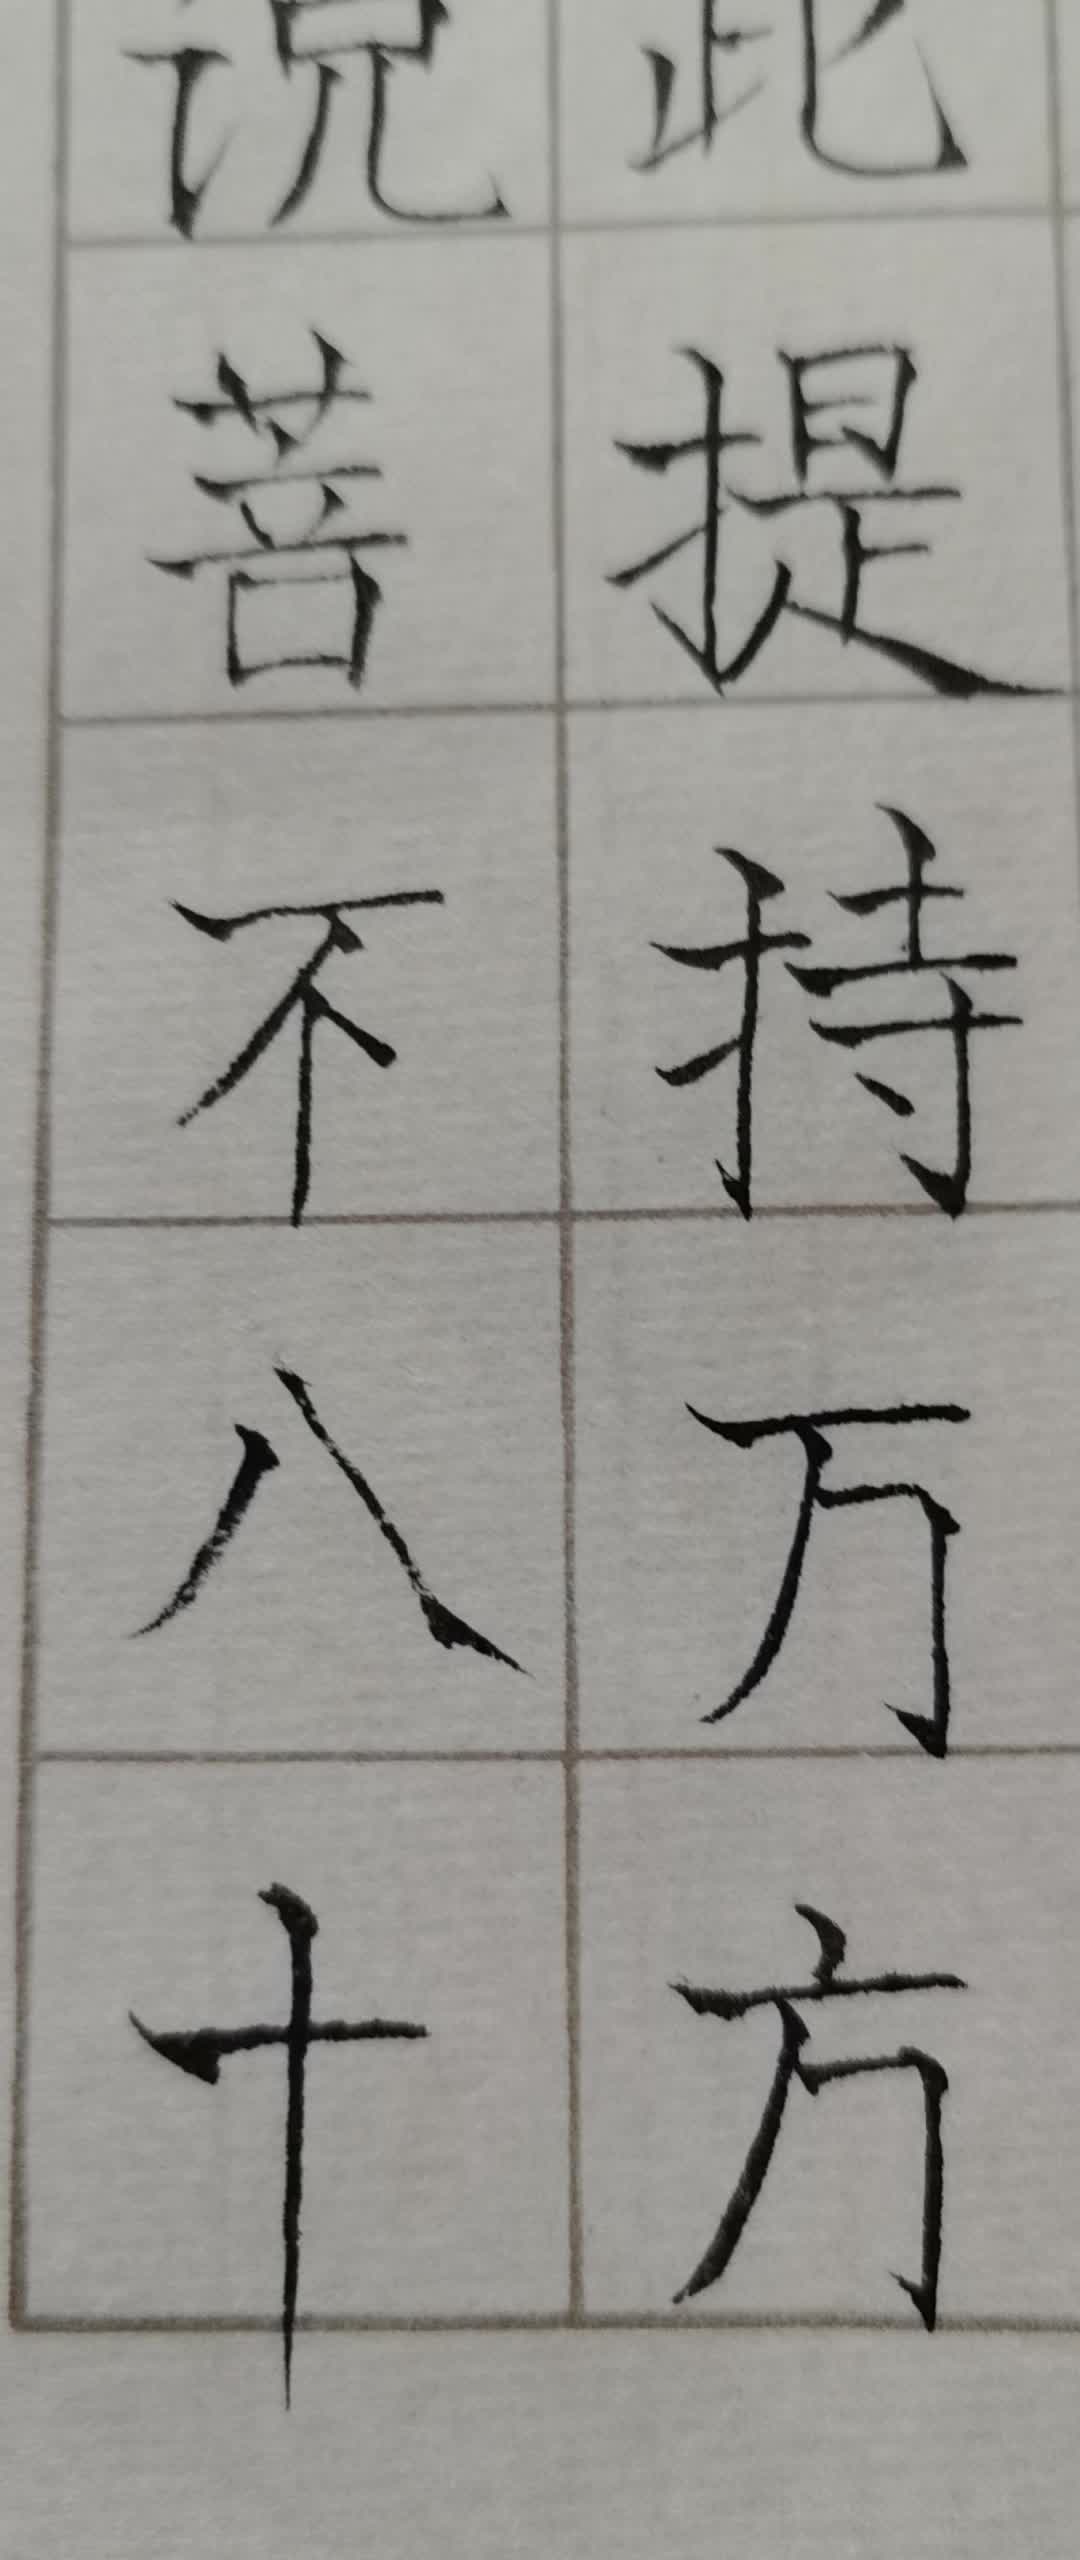 此提持万方
说菩不八十